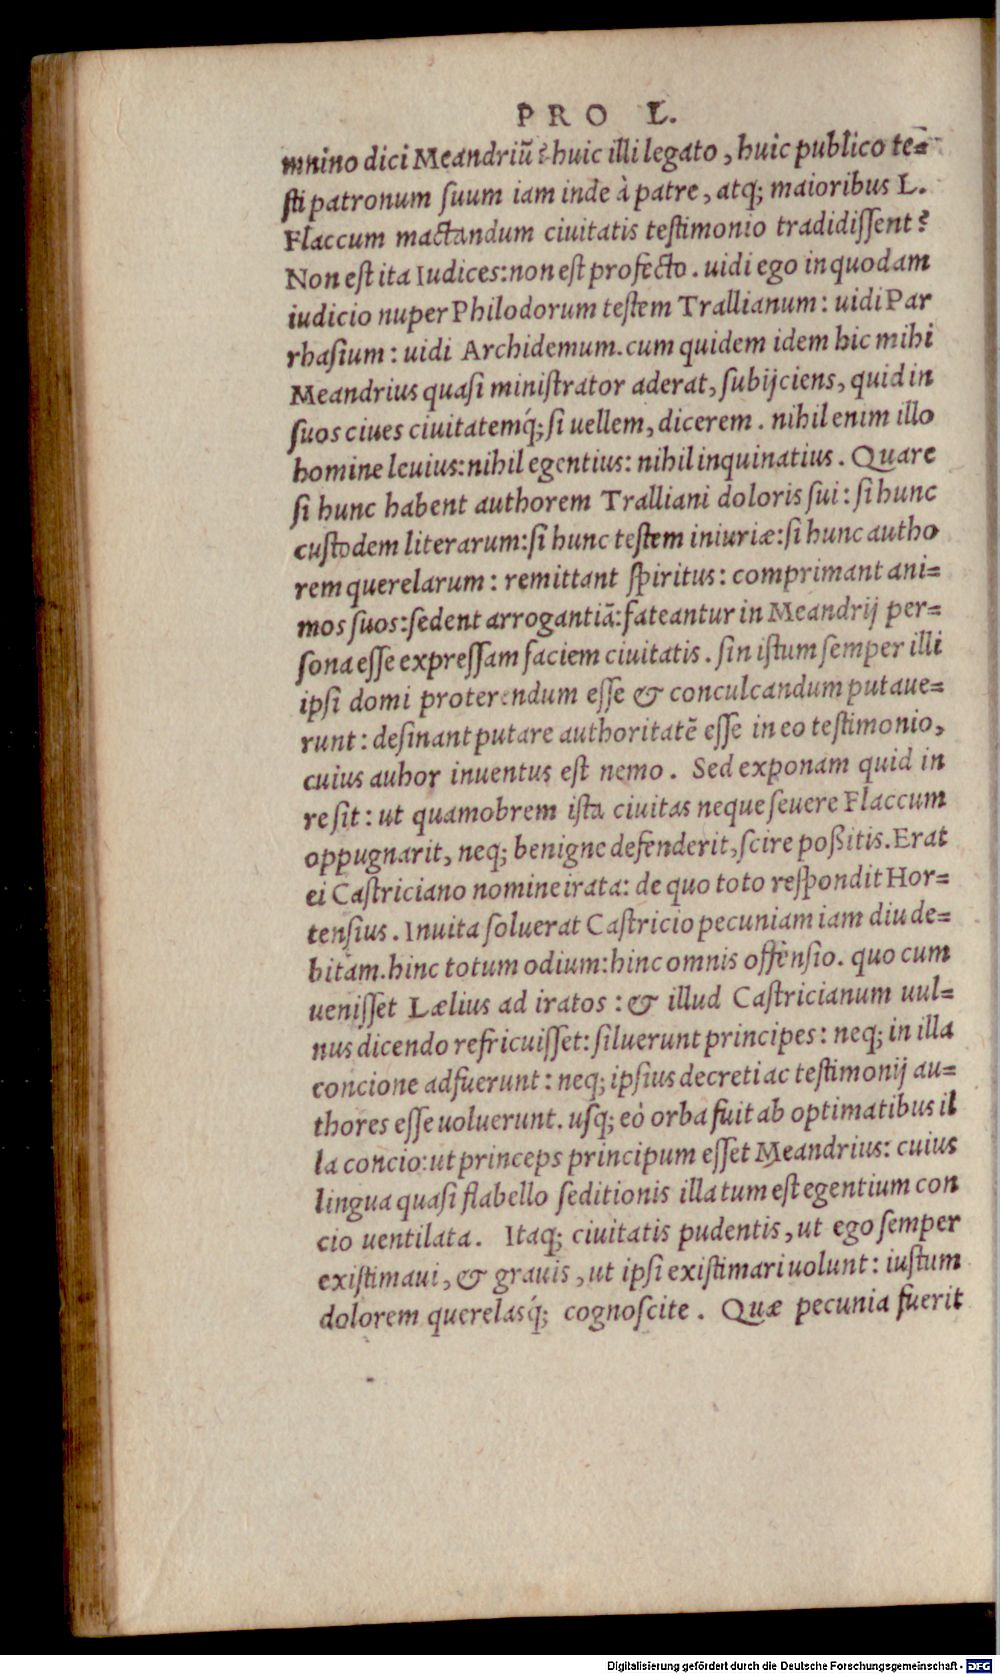 PRO L.
mnino dici Meandriũ? huic illi legato, huic publico te=
sti patronum suum iam inde à patre, atq; maioribus L.
Flaccum mactandum ciuitatis testimonio tradidissent?
Non est ita Iudices: non est profecto. uidi ego in quodam
iudicio nuper Philodorum testem Trallianum: uidi Par
rhasium: uidi Archidemum. cum quidem idem hic mihi
Meandrius quasi ministrator aderat, subijciens, quid in
suos ciues ciuitatemq́; si uellem, dicerem. nihil enim illo
homine leuius: nihil egentius: nihil inquinatius. Quare
si hunc habent authorem Tralliani doloris sui: si hunc
custodem literarum: si hunc testem iniuriæ: si hunc autho
rem querelarum: remittant spiritus: comprimant ani=
mos suos: sedent arrogantiã: fateantur in Meandrij per=
sona esse expressam faciem ciuitatis. sin istum semper illi
ipsi domi proterendum esse & conculcandum putaue=
runt: desinant putare authoritatẽ esse in eo testimonio,
cuius auhor inuentus est nemo. Sed exponam quid in
re sit: ut quamobrem ista ciuitas neque seuere Flaccum
oppugnarit, neq; benigne defenderit, scire poßitis. Erat
ei Castriciano nomine irata: de quo toto respondit Hor=
tensius. Inuita soluerat Castricio pecuniam iam diu de=
bitam. hinc totum odium: hinc omnis offensio. quo cum
uenisset Lælius ad iratos: & illud Castricianum uul=
nus dicendo refricuisset: siluerunt principes: neq; in illa
concione adfuerunt: neq; ipsius decreti ac testimonij au=
thores esse uoluerunt. usq; eò orba fuit ab optimatibus il
la concio: ut princeps principum esset Meandrius: cuius
lingua quasi flabello seditionis illa tum est egentium con
cio uentilata. Itaq; ciuitatis pudentis, ut ego semper
existimaui, & grauis, ut ipsi existimari uolunt: iustum
dolorem querelasq́; cognoscite. Quæ pecunia fuerit
Digitalisierung gefördert durch die Deutsche Forschungsgemeinschaft - DFG